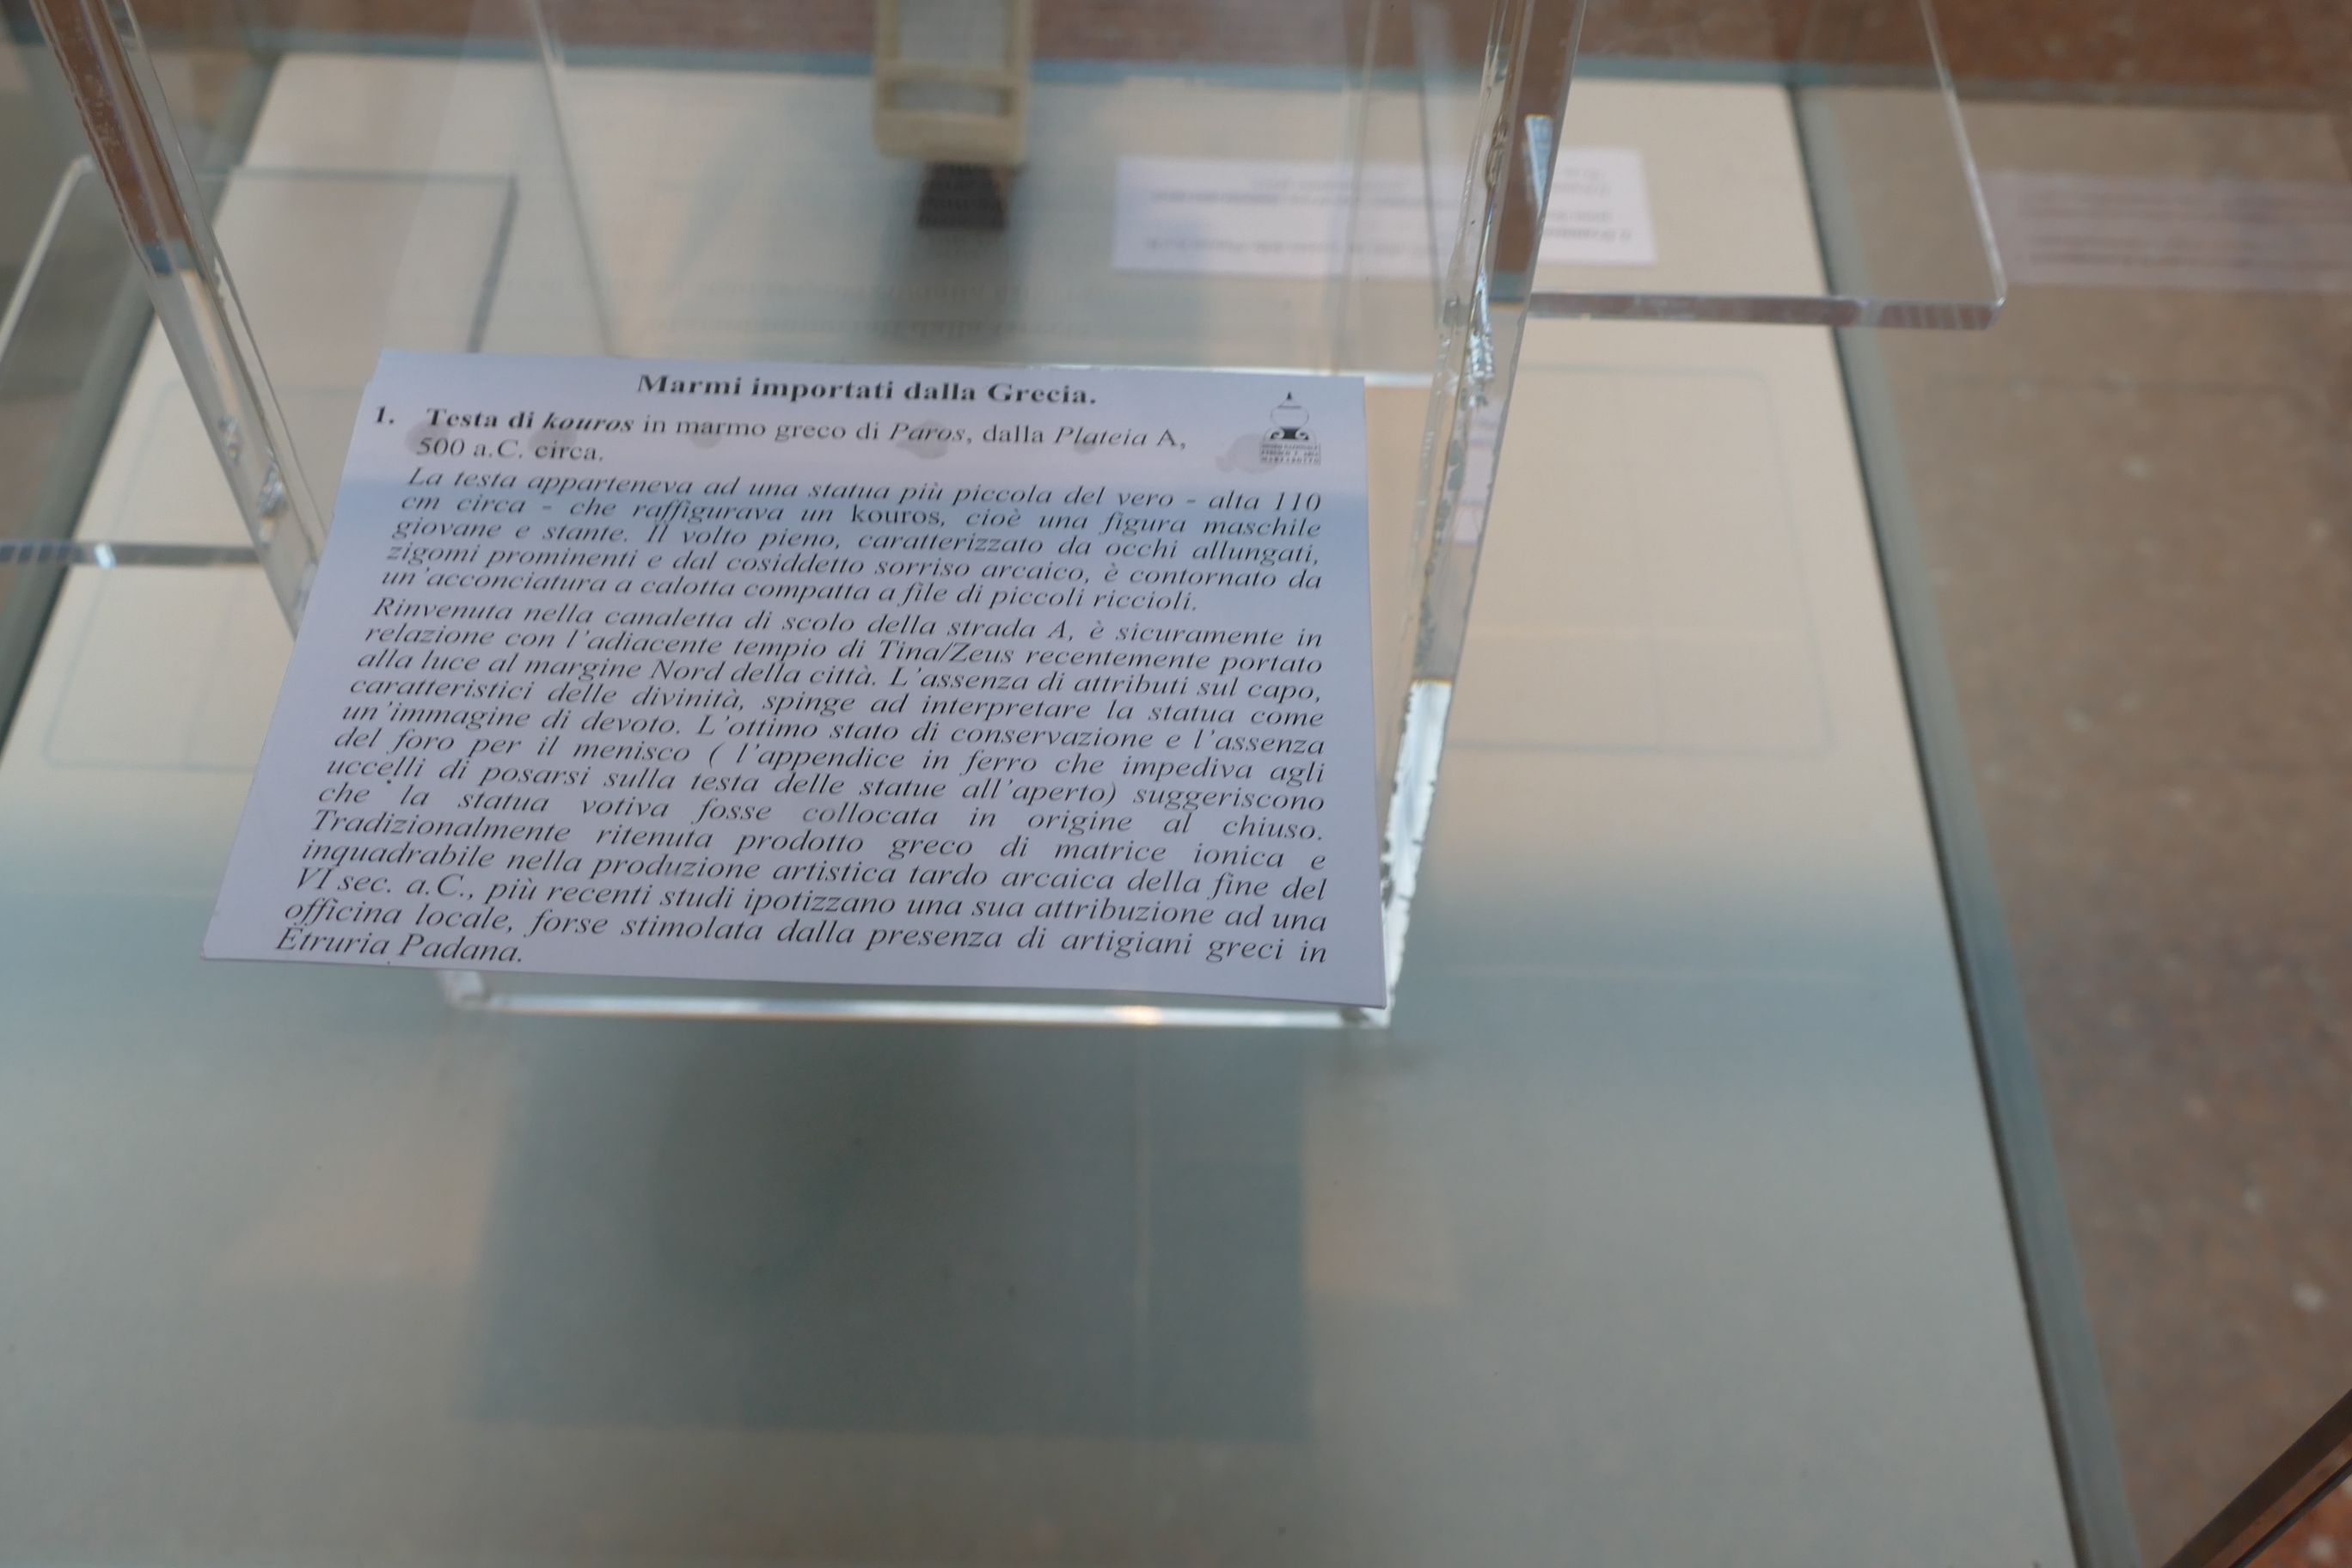 Marmi importati dalla Grecia.
1. Testa di kouros in marmo greco di Paros, dalla Plateia A,
500 a.C. circa.
La testa apparteneva ad una statua più piccola del vero - alta 110
cm circa - che raffigurava un kouros, cioè una figura maschile
giovane e stante. Il volto pieno, caratterizzato da occhi allungati,
zigomi prominenti e dal cosiddetto sorriso arcaico, è contornato da
un'acconciatura a calotta compatta a file di piccoli riccioli.
Rinvenuta nella canaletta di scolo della strada A, è sicuramente in
relazione con l'adiacente tempio di Tina/Zeus recentemente portato
alla luce al margine Nord della città. L'assenza di attributi sul capo,
caratteristici delle divinità, spinge ad interpretare la statua come
un'immagine di devoto. L'ottimo stato di conservazione e l'assenza
del foro per il menisco ( l'appendice in ferro che impediva agli
uccelli di posarsi sulla testa delle statue all'aperto) suggeriscono
che la statua votiva fosse collocata in origine al chiuso.
Tradizionalmente ritenuta prodotto greco di matrice ionica e
inquadrabile nella produzione artistica tardo arcaica della fine del
VI sec. a.C., più recenti studi ipotizzano una sua attribuzione ad una
officina locale, forse stimolata dalla presenza di artigiani greci in
Etruria Padana.